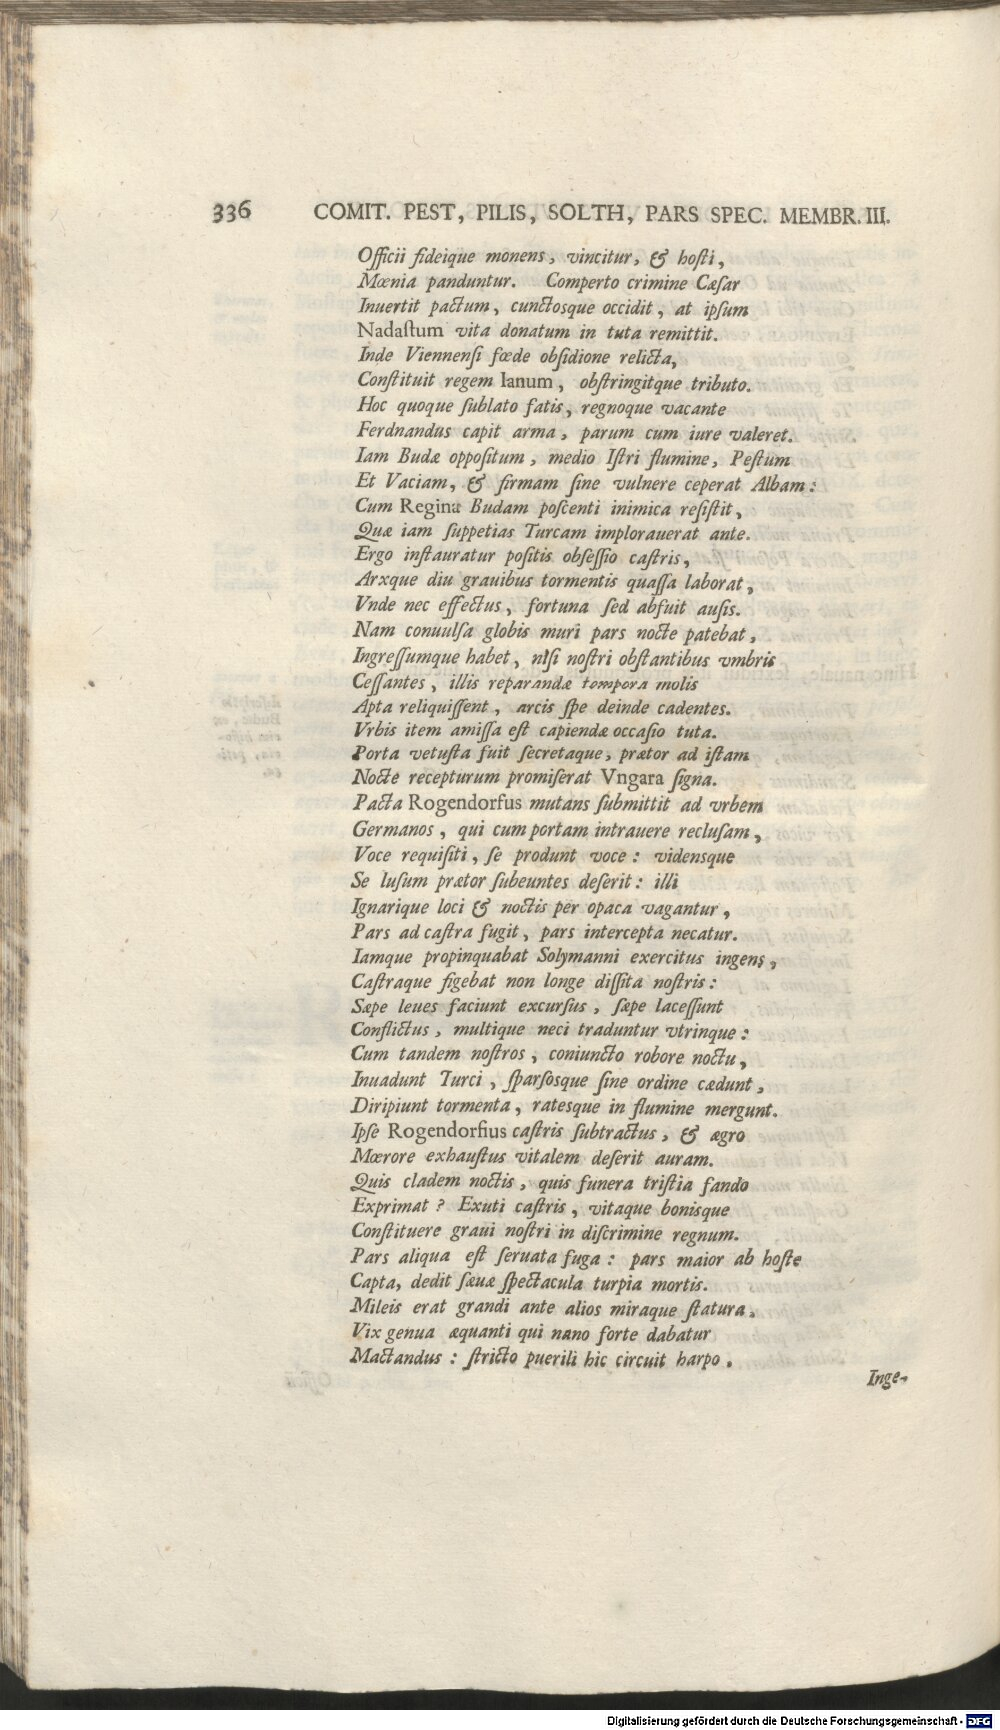 336 COMIT. PEST, PILIS, SOLTH, PARS SPEC. MEMBR. III.
Officii fideique monens, vincitur, & hoſti,
Mœnia panduntur. Comperto crimine Cæſar
Inuertit pactum, cunctosque occidit, at ipſum
Nadaſtum vita donatum in tuta remittit.
Inde Viennenſi fœde obſidione relicta,
Conſtituit regem Ianum, obſtringitque tributo.
Hoc quoque ſublato fatis, regnoque vacante
Ferdnandus capit arma, parum cum iure valeret.
Iam Budæ oppoſitum, medio Iſtri flumine, Peſtum
Et Vaciam, & firmam ſine vulnere ceperat Albam:
Cum Regina Budam poſcenti inimica reſiſtit,
Quæ iam ſuppetias Turcam implorauerat ante.
Ergo inſtauratur poſitis obſeſſio caſtris,
Arxque diu grauibus tormentis quaſſa laborat,
Vnde nec effectus, fortuna ſed abfuit auſis.
Nam conuulſa globis muri pars nocte patebat,
Ingreſſumque habet, niſi noſtri obſtantibus vmbris
Ceſſantes, illis reparandæ tempora molis
Apta reliquiſſent, arcis ſpe deinde cadentes.
Vrbis item amiſſa eſt capiendæ occaſio tuta.
Porta vetuſta fuit ſecretaque, prætor ad iſtam
Nocte recepturum promiſerat Vngara ſigna.
Pacta Rogendorfus mutans ſubmittit ad vrbem
Germanos, qui cum portam intrauere recluſam,
Voce requiſiti, ſe produnt voce: vidensque
Se luſum prætor ſubeuntes deſerit: illi
Ignarique loci & noctis per opaca vagantur,
Pars ad caſtra fugit, pars intercepta necatur.
Iamque propinquabat Solymanni exercitus ingens,
Caſtraque figebat non longe diſſita noſtris:
Sæpe leues faciunt excurſus, ſæpe laceſſunt
Conflictus, multique neci traduntur vtrinque:
Cum tandem noſtros, coniuncto robore noctu,
Inuadunt Turci, ſparſosque ſine ordine cædunt,
Diripiunt tormenta, ratesque in flumine mergunt.
Ipſe Rogendorfius caſtris ſubtractus, & ægro
Mœrore exhauſtus vitalem deſerit auram.
Quis cladem noctis, quis funera triſtia fando
Exprimat? Exuti caſtris, vitaque bonisque
Conſtituere graui noſtri in diſcrimine regnum.
Pars aliqua eſt ſeruata fuga: pars maior ab hoſte
Capta, dedit ſæuæ ſpectacula turpia mortis.
Mileis erat grandi ante alios miraque ſtatura,
Vix genua æquanti qui nano forte dabatur
Mactandus: ſtricto puerili hic circuit harpo.
Inge-
Digitalisierung gefördert durch die Deutsche Forschungsgemeinschaft - DFG